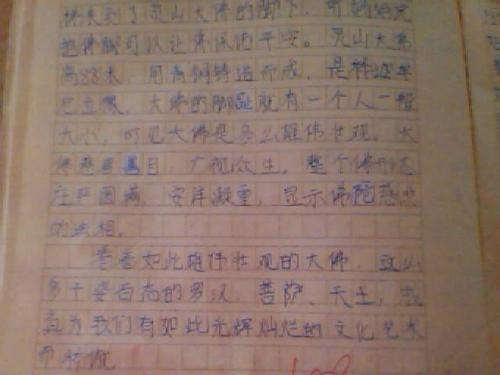 快来到了灵山大佛的脚下,听妈妈说
抱佛脚可以让佛保佑平安。灵山大佛
高88米,用青铜铸造而成,是释迦牟
尼立像,大佛的脚趾就有一个人一般
大小,可见大佛是多么雄伟壮观。大
佛慈眉善目,广视众生,整个佛形态
庄严圆满,安详凝重,显示佛陀慈悲
的法相。
看着如此雄伟壮观的大佛,这么
多千姿百态的罗汉、菩萨、天王,我
真为我们有如此光辉灿烂的文化艺术
而骄傲。